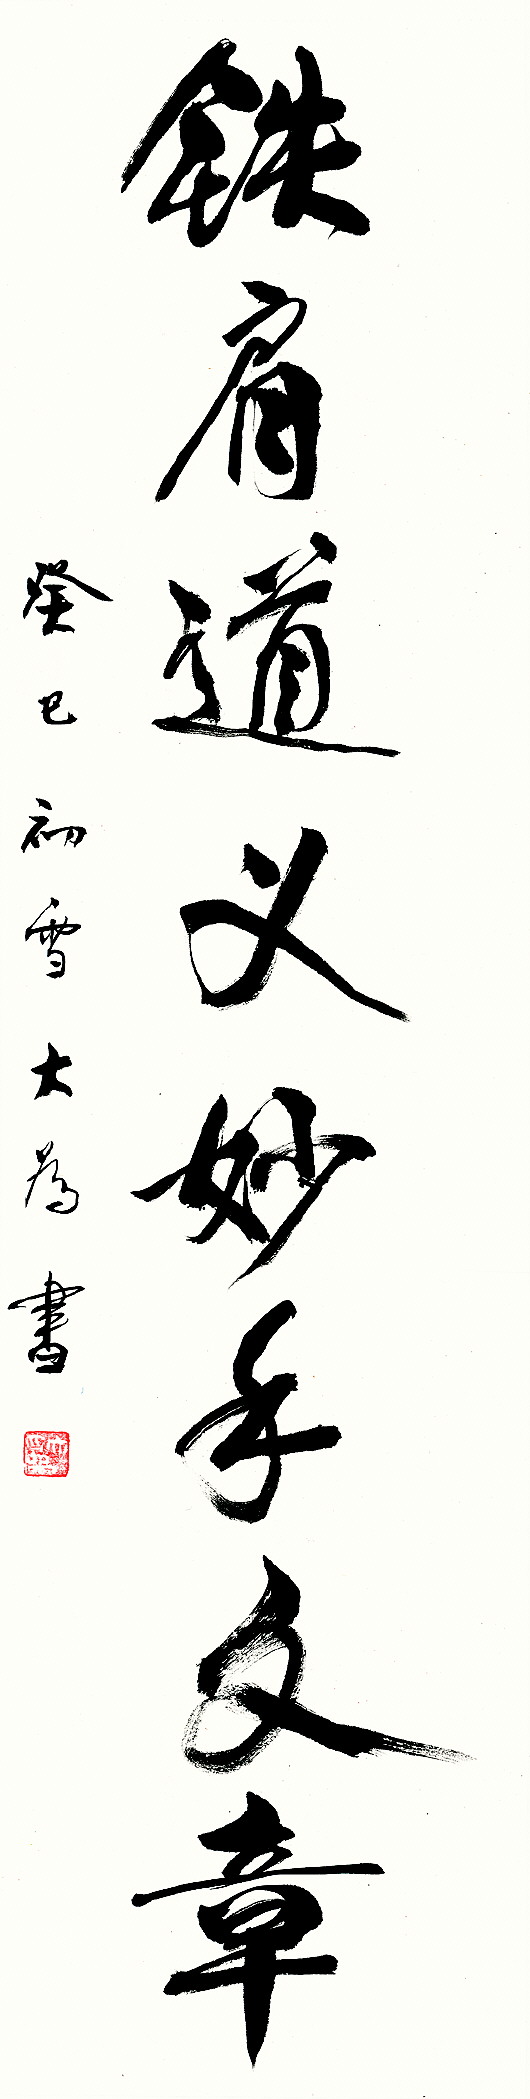 鉄肩道义妙手文章
癸巳初雪大為書